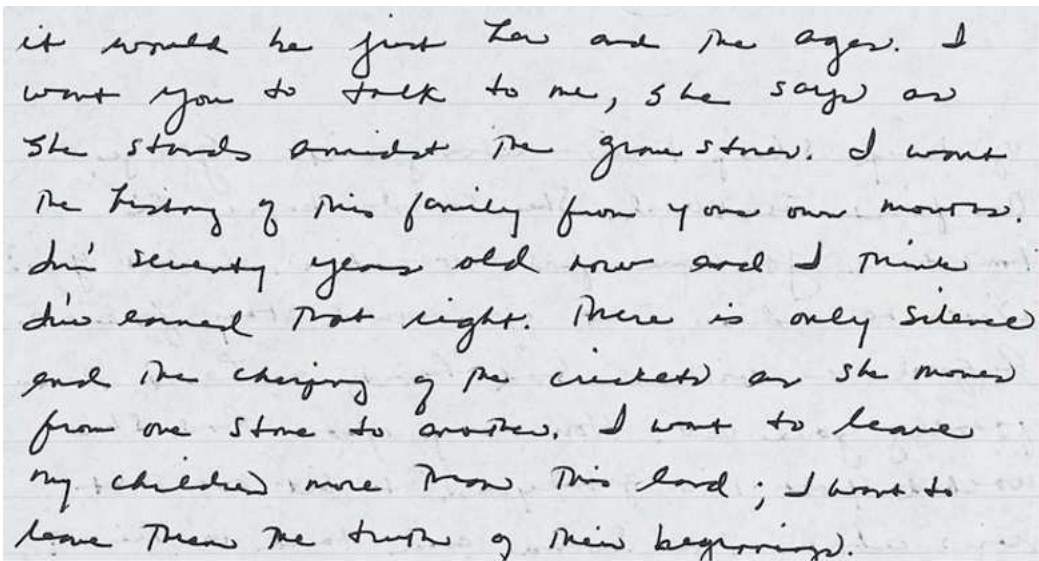 it would be just her and the ages. I
want you to talk to me, she says as
she stands amidst the gravestones. I want
the history of this family from your own mouths.
I'm seventy years old now and I think
I've earned that right. There is only silence
and the chirping of the crickets as she moves
from one stone to another. I want to leave
my children more than this land; I want to
leave them the truth of their beginnings.